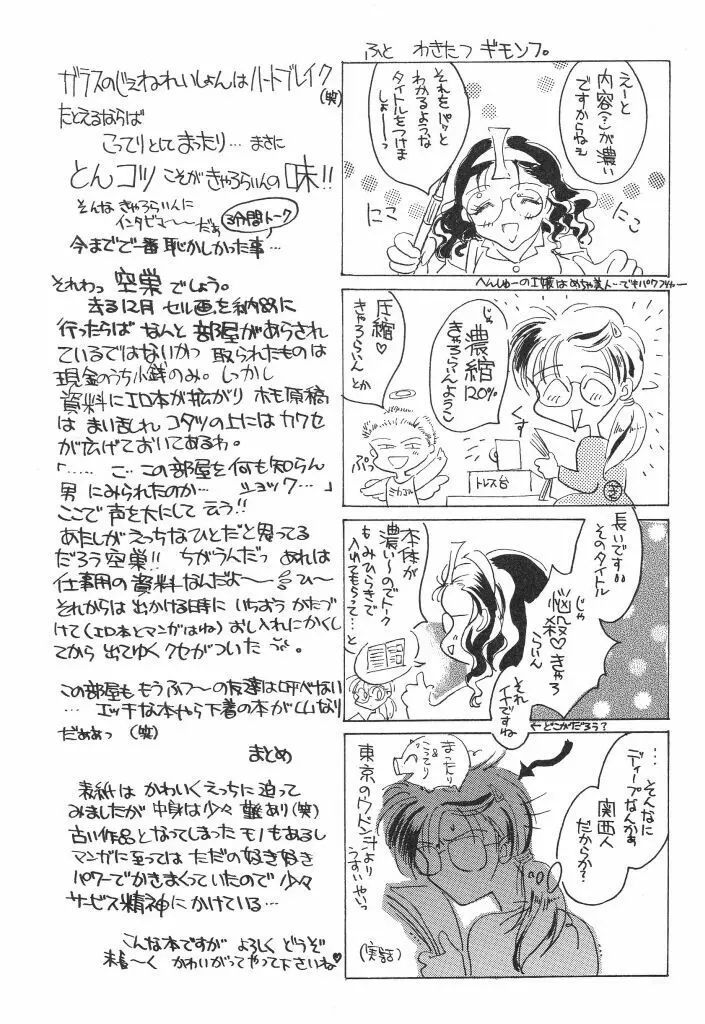 ふと わきたつ ギモンフ。
えーと
内容(?)が濃い
ですからねぇ
それをパッと
わかるような
タイトルをつけま
しょーっ
にこ
にこ
へんしゅーのI嬢はめちゃ美人ー
じゃ
濃縮
120%
きゃろらいんようこ
圧縮♡
きゃろらいん
とか
くす
ぷっ
トレス台
長いです。
そのタイトル
じゃ
悩殺♡きゃろ
らいん
それ
イイですね
本体が
濃い〜のでトーク
もみひらきで
入れてもらって…と
←どこがだろう?
…そんなに
ディープなんかぁ
関西人
だからか?
まったり
&
こってり
東京のウドン汁より
うすいやいっ
(実話)
ガラスのじぇねれいしょんはハートブレイク
(笑)
たとえるならば
こってりとしてまったり… まさに
とんコツ こそがきゃろらいんの味!!
そんな きゃろらいんに
インタビュ〜〜だぁ
3分間トーク
今までで一番恥かしかった事…
それわっ 空巣 でしょう。
去る12月 セル画を納品に
行ったらば なんと 部屋があらされ
ているではないかっ 取られたものは
現金のうち小銭のみ。しっかし
資料にエロ本が拡がり ホモ原稿
は まい乱れ コタツの上には カワセ
が広げておいてあるわ。
「……こ…この部屋を何も知らん
男 にみられたのか… ショック…」
ここで声を大にして 云う!!
あたしがえっちなひとだと思ってる
だろう空巣!! ちがうんだっ あれは
仕事用の資料なんだよ〜〜ひ〜
それからは 出かける時に いちおう かたづ
けて(エロ本とマンガはね)おし入れにかくし
てから 出てゆく クセがついた
この部屋も もうふつ〜の友達は呼べない
… エッチな本やら下着の本がてんなり
だぁぁっ (笑)
まとめ
表紙は かわいくえっちに迫って
みましたが 中身は少々 難あり(笑)
古い作品となってしまった モノもあるし
マンガに至っては ただの好き好き
パワーでかきまくっていたので 少々
サービス精神にかけている…
こんな本ですが よろしく どうぞ
末長〜く かわいがってやって下さいね♡